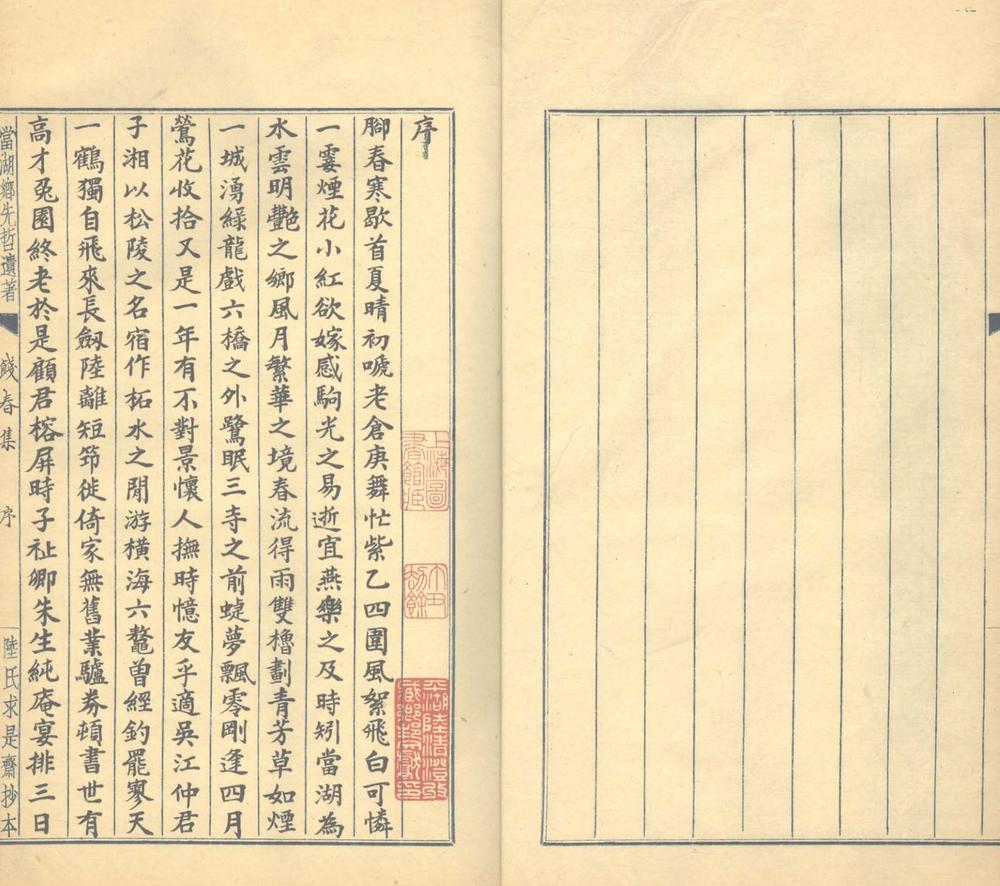 序
腳春寒歇首夏晴初唬老倉庚舞忙紫乙四圍風絮飛白可憐
一霎煙花小紅欲嫁感駒光之易逝宜燕樂之及時矧當湖為
水雲明艷之鄉風月繁華之境春流得雨雙櫓劃青芳草如煙
一城湧綠龍戲六橋之外鷺眠三寺之前蜨夢飄零剛逢四月
鶯花收拾又是一年有不對景懷人撫時憶友乎適吳江仲君
子湘以松陵之名宿作柘水之閒游橫海六鼇曾經釣罷寥天
一鶴獨自飛來長劔陸離短笻徙倚家無舊業驢券頓書世有
高才兔園終老於是顧君榕屏時子祉卿朱生純庵宴排三日
當湖鄉先哲遺著
餞春集
序
陸氏求是齋抄本
上海圖書館藏